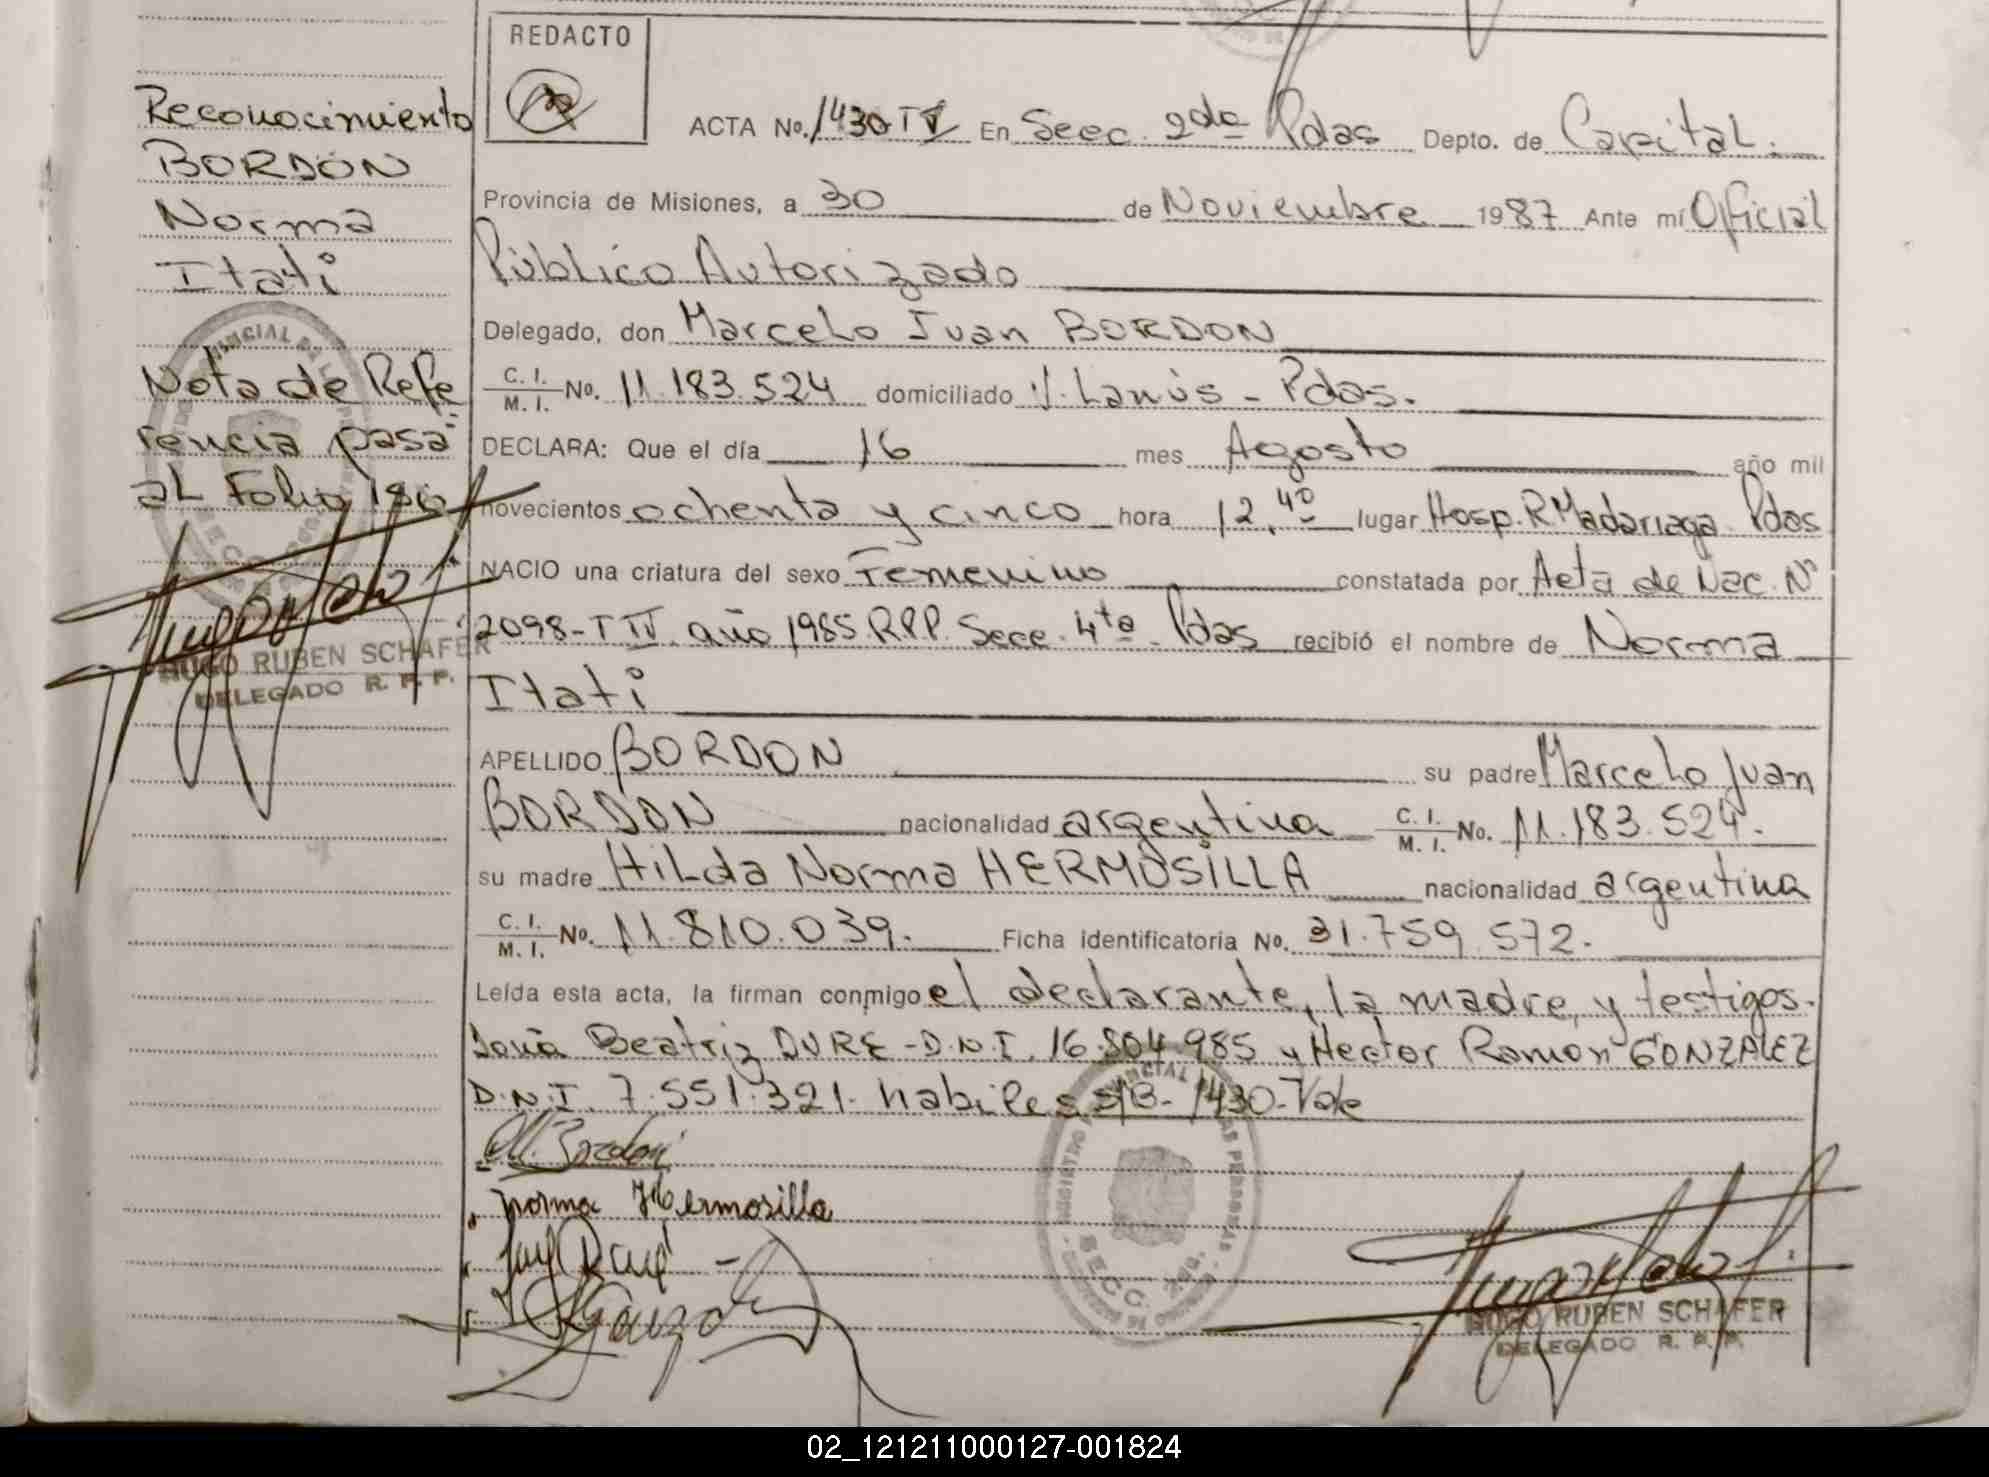 REDACTO
Reconocimiento
BORDON
Norma
Itatí
Nota de Refe
rencia pasa
al Folio 180
HUGO RUBEN SCHAFER
DELEGADO R. P. P.
ACTA No. 1430 T V En Secc. 2da Pdas Depto. de Capital.
Provincia de Misiones, a 30 de Noviembre 1987 Ante mí Oficial
Público Autorizado
Delegado, don Marcelo Juan BORDON
C. I. / M. I. No. 11.183.524 domiciliado V. Lanús - Pdas.
DECLARA: Que el día 16 mes Agosto año mil
novecientos ochenta y cinco hora 12,40 lugar Hosp. R Madariaga Pdas
NACIO una criatura del sexo Femenino constatada por Acta de Nac. Nº
2098-T IV. año 1985 R.P.P. Secc. 4ta Pdas recibió el nombre de Norma
Itatí
APELLIDO BORDON su padre Marcelo Juan
BORDON nacionalidad argentina C. I. / M. I. No. 11.183.524.
su madre Hilda Norma HERMOSILLA nacionalidad argentina
C. I. / M. I. No. 11.810.039. Ficha identificatoria No. 31.759.572.
Leída esta acta, la firman conmigo el declarante, la madre, y testigos.
Beatriz DURE - D.N.I. 16.804.985 y Hector Ramon GONZALEZ
D.N.I. 7.551.321. habiles S/B- 1430-Vale
M. Bordon
norma Hermosilla
SECC. 2da.
HUGO RUBEN SCHAFER
DELEGADO R. P. P.
02_121211000127-001824